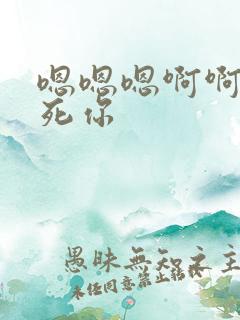 嗯嗯嗯啊啊
死你
愚昧無知之主
未任同意禁止转载